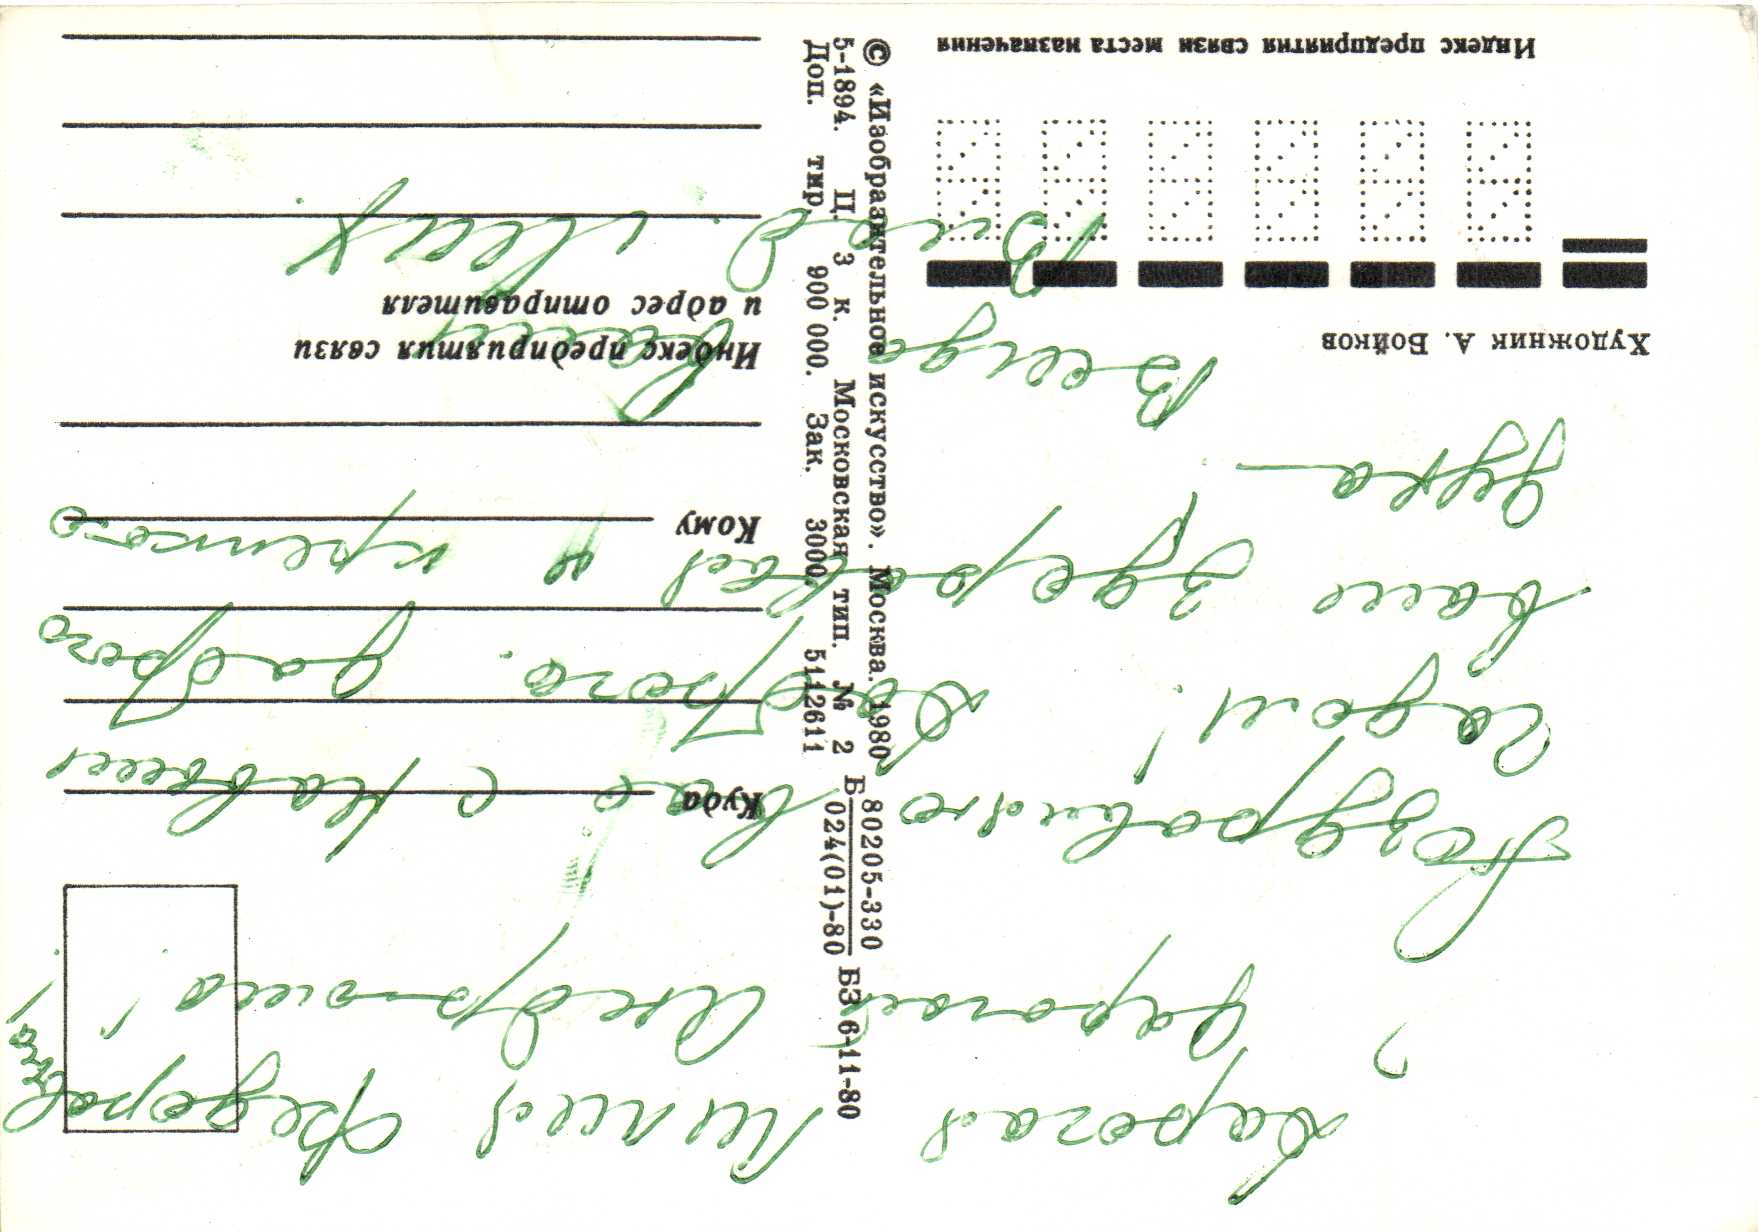 Дорогая Лилия Федоровна!
дорогой Андрюша!
Поздравляю вас с Новым
Годом! Доброго. доброго
вам здоровья и крепкого
духа —
Всегда Ваш
Художник А. Бойков
Индекс предприятия связи места назначения
© «Изобразительное искусство». Москва. 1980
5-1894. Ц. 3 к. Московская тип. № 2
Доп. тир. 900 000. Зак. 3000 5112611
Б 80205-330 БЗ 6-11-80
024(01)-80
Куда
Кому
Индекс предприятия связи
и адрес отправителя